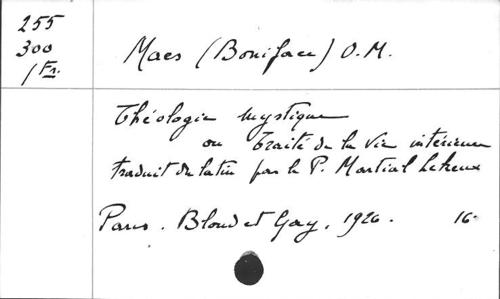 255
300
/ Fr.
Maes (Boniface) O.M.
Théologie mystique
ou Traité de la Vie intérieure
traduit du latin par le P. Martial Lekeux
Paris. Bloud et Gay, 1926. 16°